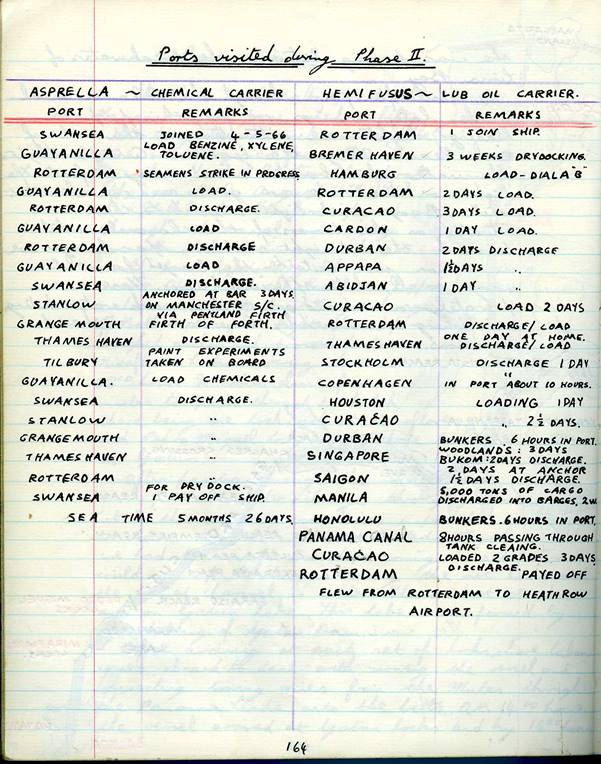 Ports visited during Phase II.
ASPRELLA ~ CHEMICAL CARRIER HEMIFUSUS ~ LUB OIL CARRIER.
PORT REMARKS PORT REMARKS
SWANSEA JOINED 4-5-66 ROTTERDAM 1 JOIN SHIP.
GUAYANILLA LOAD BENZINE, XYLENE, TOLUENE. BREMER HAVEN 3 WEEKS DRYDOCKING.
ROTTERDAM SEAMENS STRIKE IN PROGRESS HAMBURG LOAD-DIALA "B"
GUAYANILLA LOAD. ROTTERDAM 2 DAYS LOAD.
ROTTERDAM DISCHARGE. CURACAO 3 DAYS LOAD.
GUAYANILLA LOAD CARDON 1 DAY LOAD.
ROTTERDAM DISCHARGE DURBAN 2 DAYS DISCHARGE
GUAYANILLA LOAD APPAPA 1½ DAYS "
SWANSEA DISCHARGE. ABIDJAN 1 DAY "
STANLOW ANCHORED AT BAR 3 DAYS ON MANCHESTER S/C. CURACAO LOAD 2 DAYS
GRANGE MOUTH VIA PENTLAND FIRTH FIRTH OF FORTH. ROTTERDAM DISCHARGE/LOAD
THAMES HAVEN DISCHARGE. THAMESHAVEN ONE DAY AT HOME. DISCHARGE/LOAD
TILBURY PAINT EXPERIMENTS TAKEN ON BOARD STOCKHOLM DISCHARGE 1 DAY
GUAYANILLA. LOAD CHEMICALS COPENHAGEN " IN PORT ABOUT 10 HOURS.
SWANSEA DISCHARGE. HOUSTON LOADING 1 DAY
STANLOW " CURAÇAO " 2½ DAYS.
GRANGEMOUTH " DURBAN BUNKERS. 6 HOURS IN PORT.
THAMESHAVEN " SINGAPORE WOODLANDS: 3 DAYS BUKOM: 2 DAYS DISCHARGE.
ROTTERDAM SAIGON 2 DAYS AT ANCHOR 1½ DAYS DISCHARGE.
SWANSEA FOR DRY DOCK. 1 PAY OFF SHIP. MANILA 5,000 TONS OF CARGO DISCHARGED INTO BARGES,
SEA TIME 5 MONTHS 26 DAYS HONOLULU BUNKERS. 6 HOURS IN PORT.
PANAMA CANAL 8 HOURS PASSING THROUGH TANK CLEAING.
CURACAO LOADED 2 GRADES 3 DAYS
ROTTERDAM DISCHARGE. PAYED OFF
FLEW FROM ROTTERDAM TO HEATHROW
AIRPORT.
164